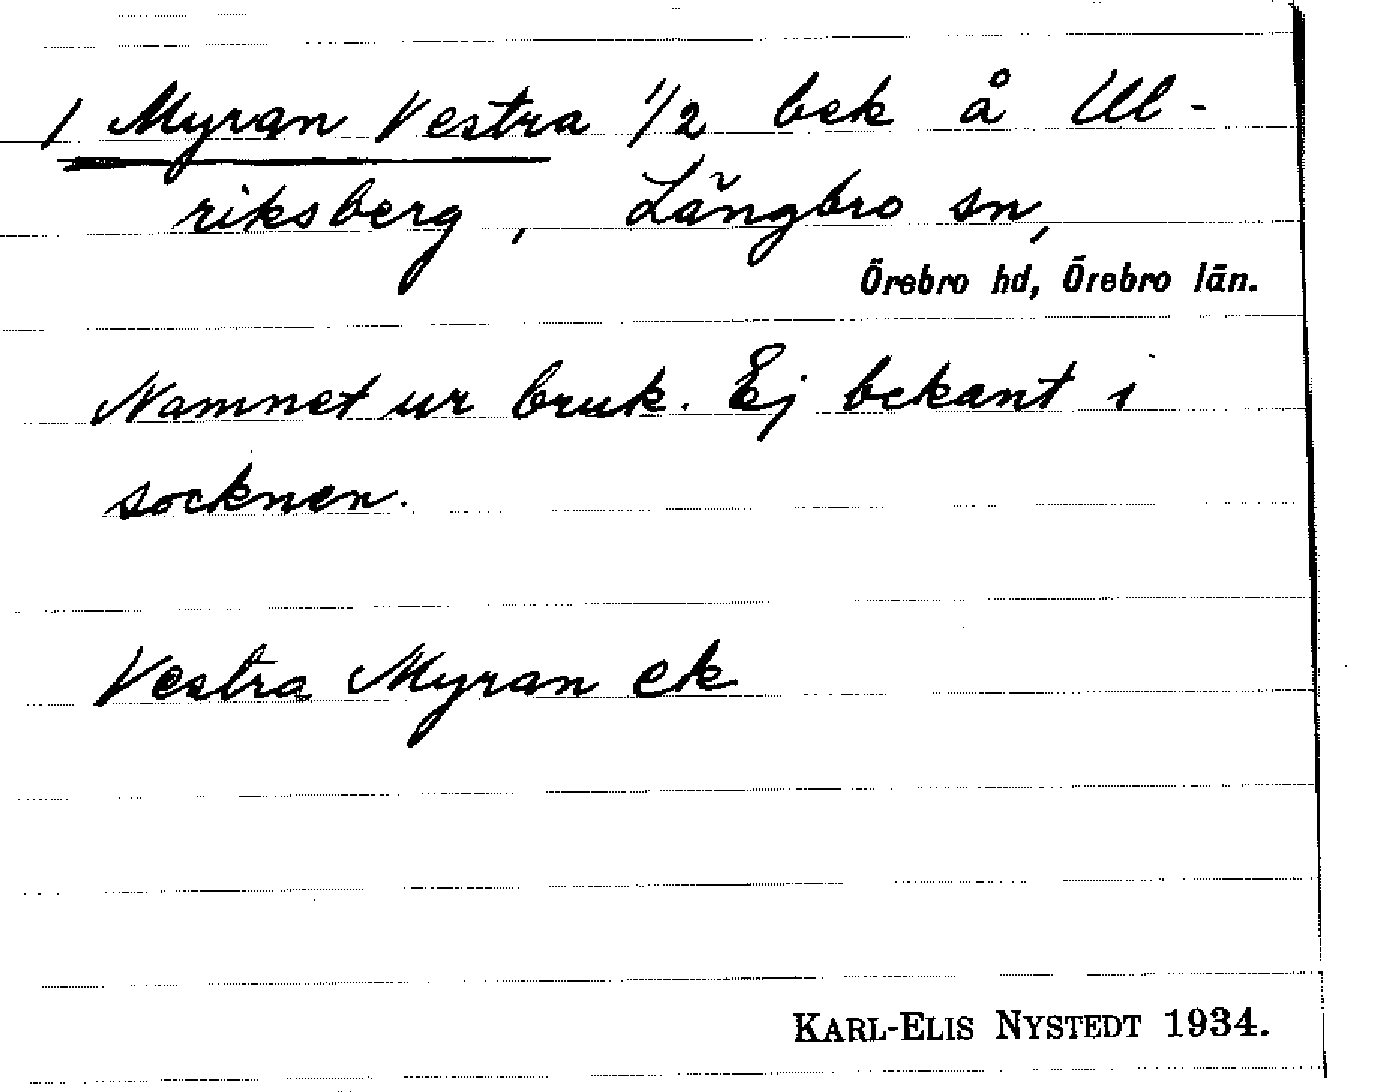 / Myran Vestra 1/2 bek å Ul-
riksberg, Längbro sn,
Örebro hd, Örebro län.
Namnet ur bruk. Ej bekant i
socknen.
Vestra Myran ek
KARL-ELIS NYSTEDT 1934.